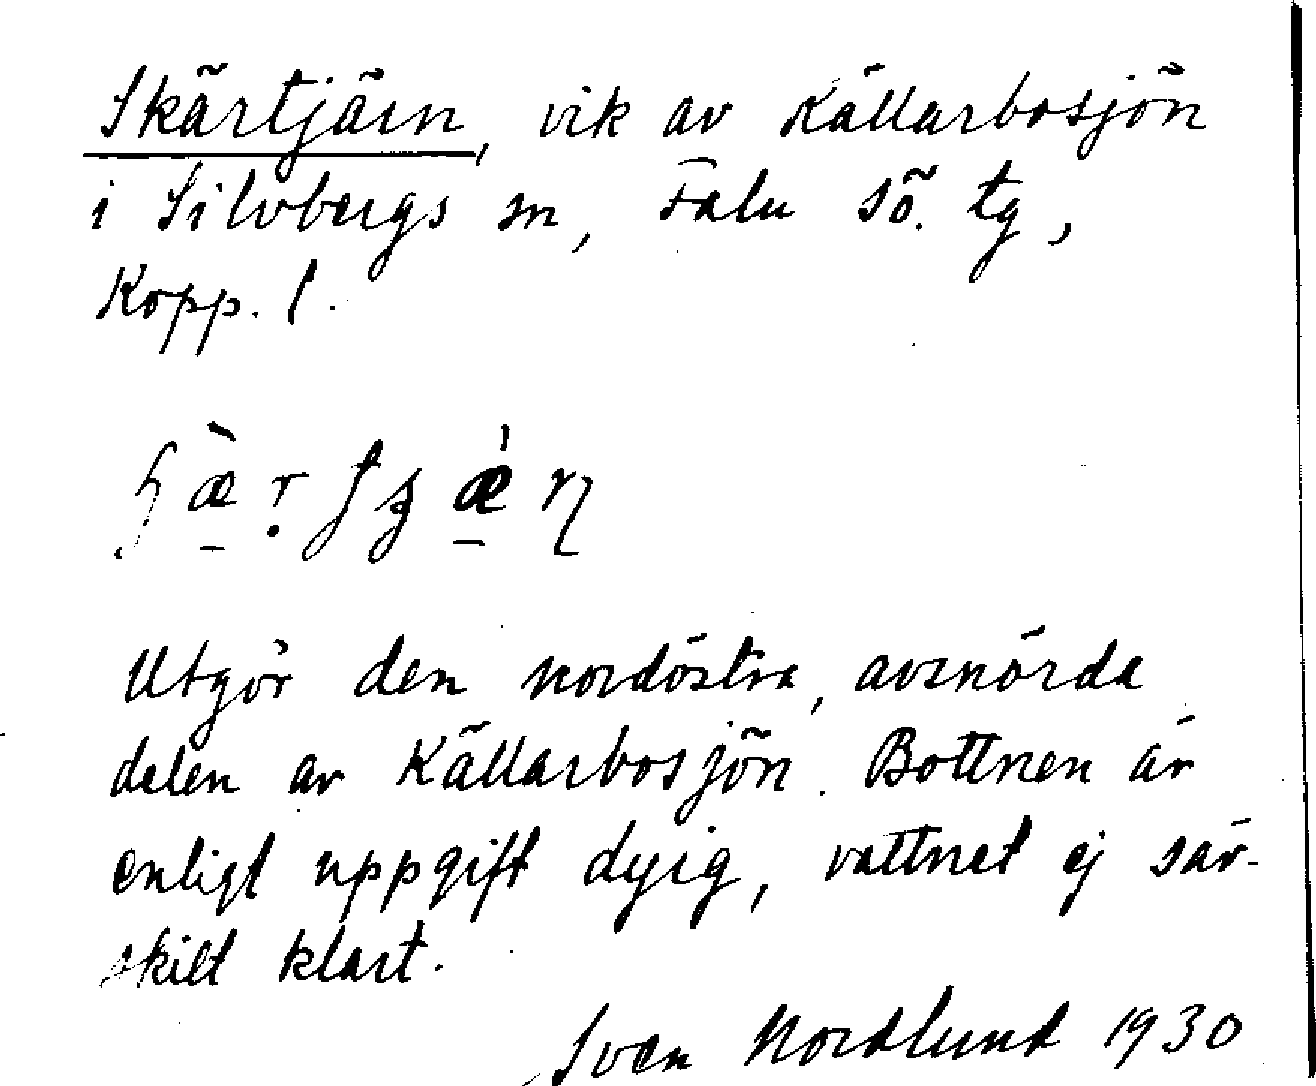 Skärtjärn, vik av Källarbosjön
i Silvbergs sn, Falu sö. tg,
Kopp. l.
Utgör den nordöstra, avsnörda
delen av Källarbosjön. Bottnen är
enligt uppgift dyig, vattnet ej sär-
skilt klart.
Sven Nordlund 1930